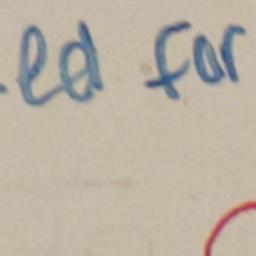 -ed for